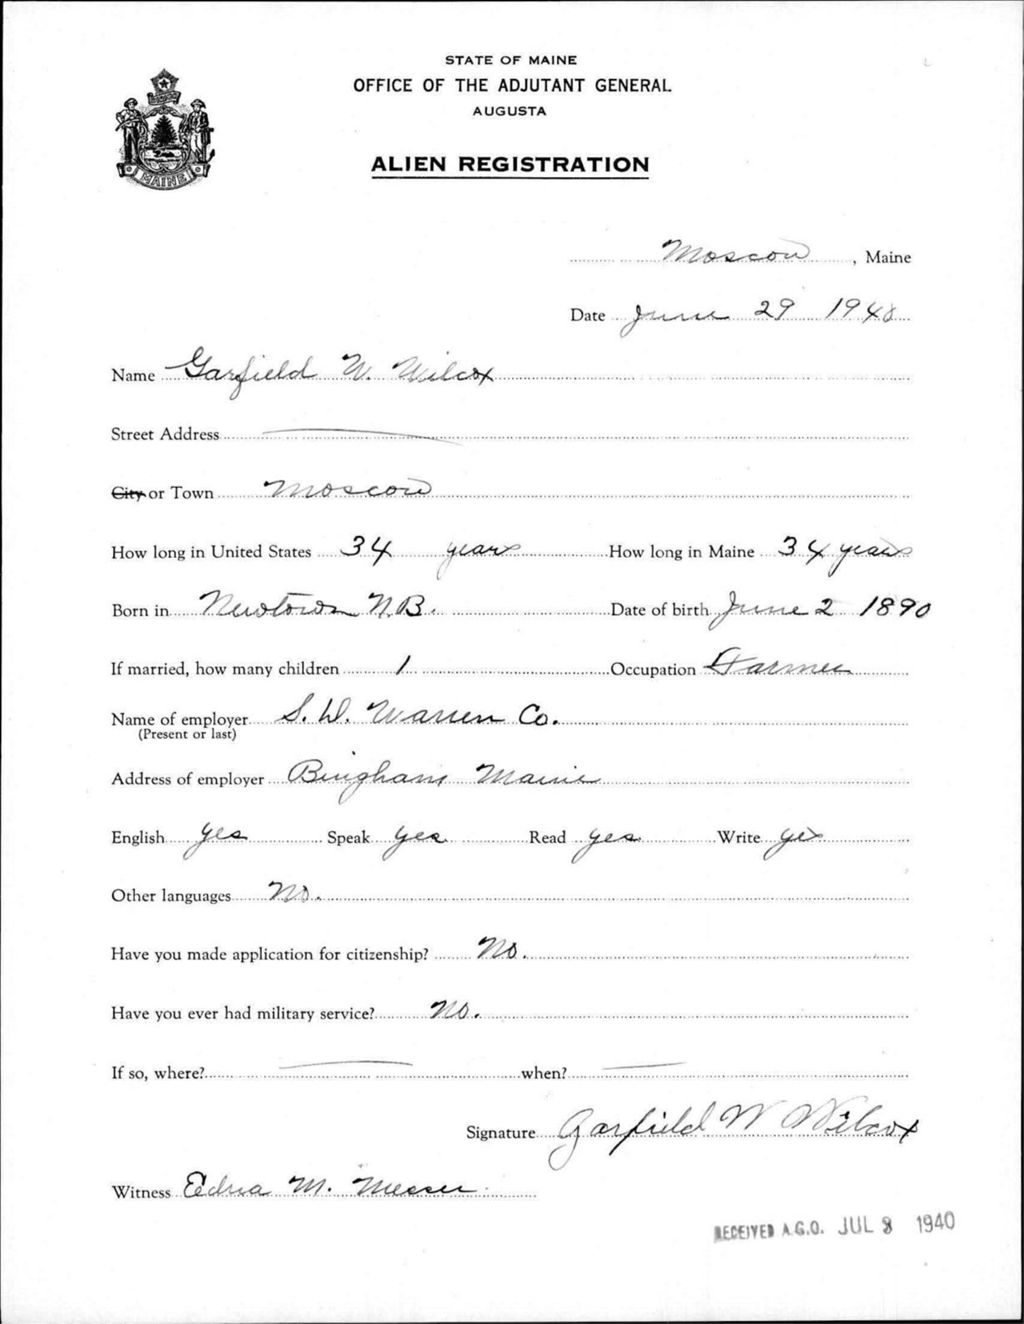 STATE OF MAINE
OFFICE OF THE ADJUTANT GENERAL
AUGUSTA
MAINE
ALIEN REGISTRATION
Moscow, Maine
Date June 29 1940
Name Garfield W. Wilcox
Street Address
City or Town Moscow
How long in United States 34 years How long in Maine 34 years
Born in Newtown N.B. Date of birth June 2 1890
If married, how many children 1 Occupation Farmer
Name of employer S. D. Warren Co.
(Present or last)
Address of employer Bingham Maine
English Yes Speak Yes Read Yes Write Yes
Other languages No.
Have you made application for citizenship? No.
Have you ever had military service? No.
If so, where? when?
Signature Garfield W Wilcox
Witness Edna M. Messer
RECEIVED A.G.O. JUL 1940